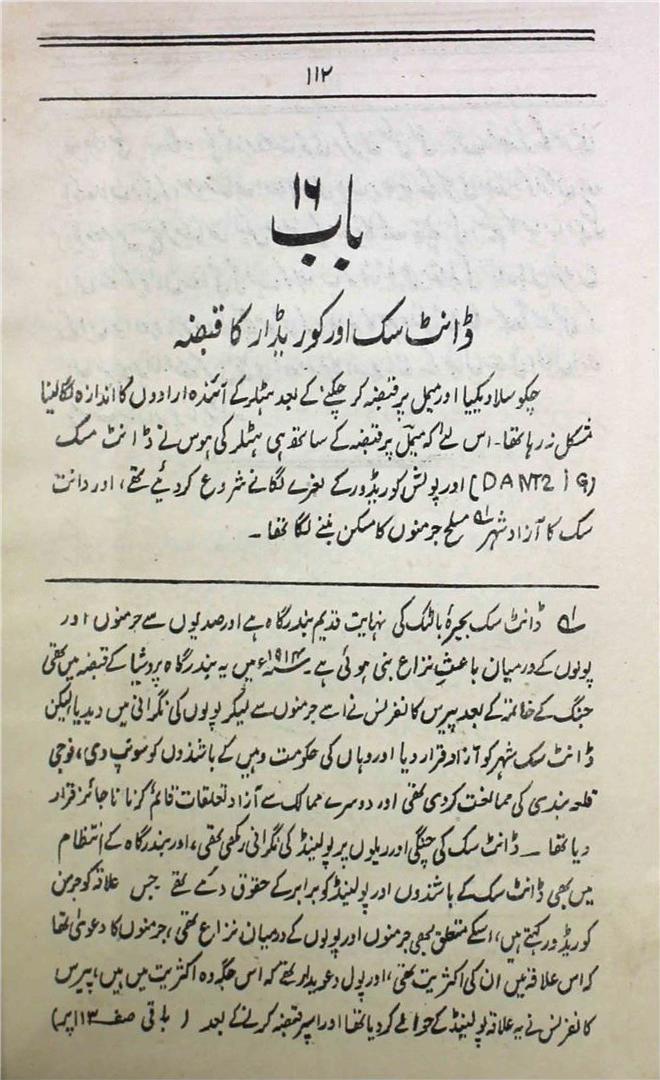 ۱۱۲
باب ۱۶
ڈانٹ سک اور کوریڈار کا قبضہ
چکوسلاویکیا اور میمل پر قبضہ کر چکنے کے بعد ہٹلر کے آئندہ ارادوں کا اندازہ لگا لینا
مشکل نہ رہا تھا۔ اس لئے کہ میمل پر قبضہ کے ساتھ ہی ہٹلر کی ہوس نے ڈانٹ سک
(DANTZIG) اور پولش کوریڈور کے نعرے لگانے شروع کردیئے تھے، اور دانت
سک کا آزاد شہر لہ مسلح جرمنوں کا مسکن بننے لگا تھا۔
لہ ڈانٹ سک بحیرۂ بالٹک کی نہایت قدیم بندرگاہ ہے اور صدیوں سے جرمنوں اور
پولوں کے درمیان باعثِ نزاع بنی ہوئی ہے۔ ۱۹۱۴ء میں یہ بندرگاہ پروشیا کے قبضہ میں تھی
جنگ کے خاتمہ کے بعد پیرس کانفرنس نے اسے جرمنوں سے لیکر پولوں کی نگرانی میں دیدیا لیکن
ڈانٹ سک شہر کو آزاد قرار دیا اور وہاں کی حکومت وہیں کے باشندوں کو سونپ دی، فوجی
قلعہ بندی کی ممالخت کردی تھی اور دوسرے ممالک سے آزاد تعلقات قائم کرنا ناجائز قرار
دیا تھا۔ ڈانٹ سک کی چنگی اور ریلوں پر پولینڈ کی نگرانی رکھی تھی، اور بندرگاہ کے انتظام
میں بھی ڈانٹ سک کے باشندوں اور پولینڈ کو برابر کے حقوق دئے تھے جس علاقہ کو جرمن
کوریڈور کہتے ہیں، اسکے متعلق بھی جرمنوں اور پولوں کے درمیان نزاع تھی، جرمنوں کا دعویٰ تھا
کہ اس علاقہ میں ان کی اکثریت تھی، اور پول دعویدار تھے کہ اس جگہ وہ اکثریت میں ہیں، پیرس
کانفرنس نے یہ علاقہ پولینڈ کے حوالے کر دیا تھا اور اسپر قبضہ کرنے کے بعد (باقی صفحہ ۱۱۳ پر)